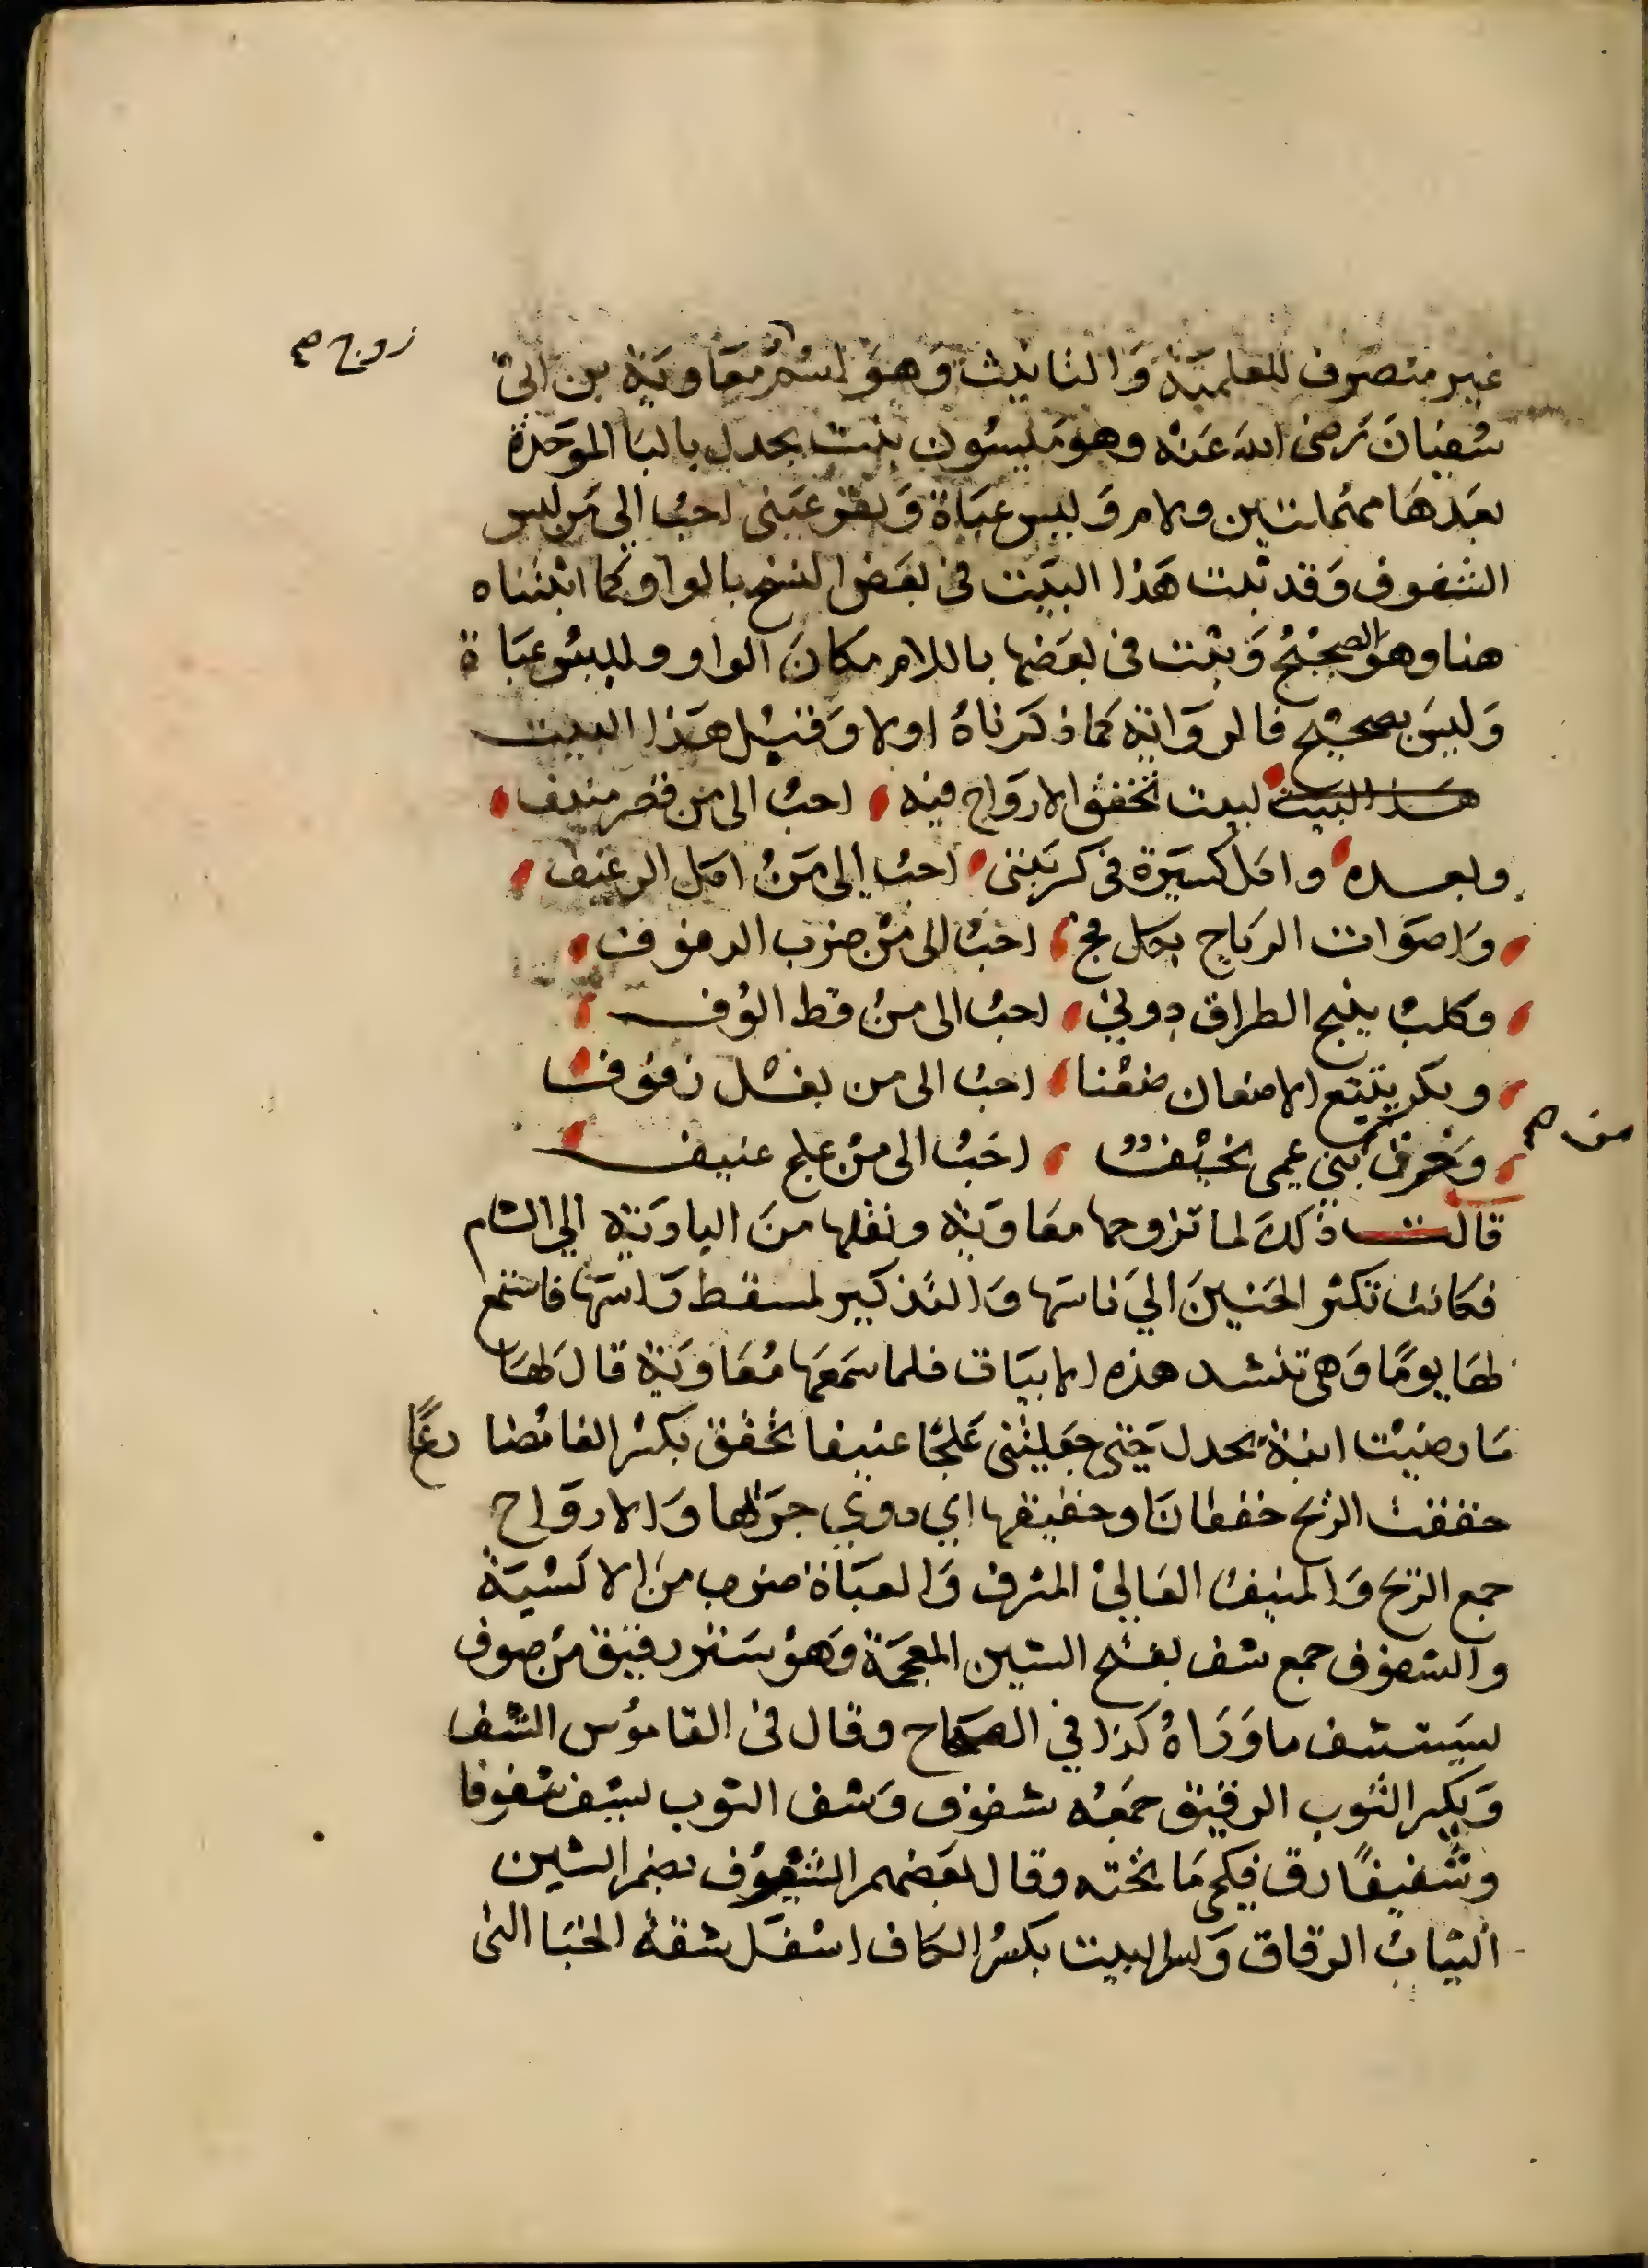 زوج صح
غير منصرف للعلمية والتانيث وهو اسم معاوية بن ابى
سفيان رضى الله عنه وهو ميسون بنت بحدل بالبا الموحدة
بعدها مهملتين ولام ولبس عباة وتقر عينى احب الي من لبس
الشفوف وقد ثبت هذا البيت فى بعض النسخ بالواو كما اثبتناه
هنا وهو الصحيح وثبت فى بعضها باللام مكان الواو وللبس عباة
وليس بصحيح فالرواية كما ذكرناه اولا وقبل هذا البيت
هذا البيت لبيت تخفق الارواح فيه احب الى من قصر منيف
وبعده واكل كسيرة فى كسر بيتى احب الى من اكل الرغيف
واصوات الرياح بكل فج احب الى من ضرب الدفوف
وكلب ينبح الطراق دونى احب الى من قط الوف
وبكر يتبع الاضعان ضعنا احب الى من بغل زفوف
وخرق بني عمى نخيف احب الى من علج عنيف
من صح
قالت ذلك لما تزوجها معاوية ونقلها من البادية الي الشام
فكانت تكثر الحنين الي ناسها والتذكير لمسقط راسها فاستمع
لها يوما وهى تنشد هذه الابيات فلما سمعها معاوية قال لها
ما رضيت ابنة بحدل حتى جعلتنى علجا عنيفا تخفق بكسر الفا مضارعا
خفقت الريح خفقانا وخفيقها اي دوي جريها والارواح
جمع الريح والمنيف العالى المشرف والعباة ضرب من الاكسية
والشفوف جمع شف بفتح الشين المعجمة وهو ستر رقيق من صوف
يستشف ما وراه كذا في الصحاح وقال فى القاموس الشف
ويكسر الثوب الرقيق جمعه شفوف وشف الثوب يشف شفوفا
وشفيفا رق فيحكى ما تحته وقال بعضهم الشفوف بضم الشين
الثياب الرقاق وكسر البيت بكسر الكاف اسفل شقة الخبا التى